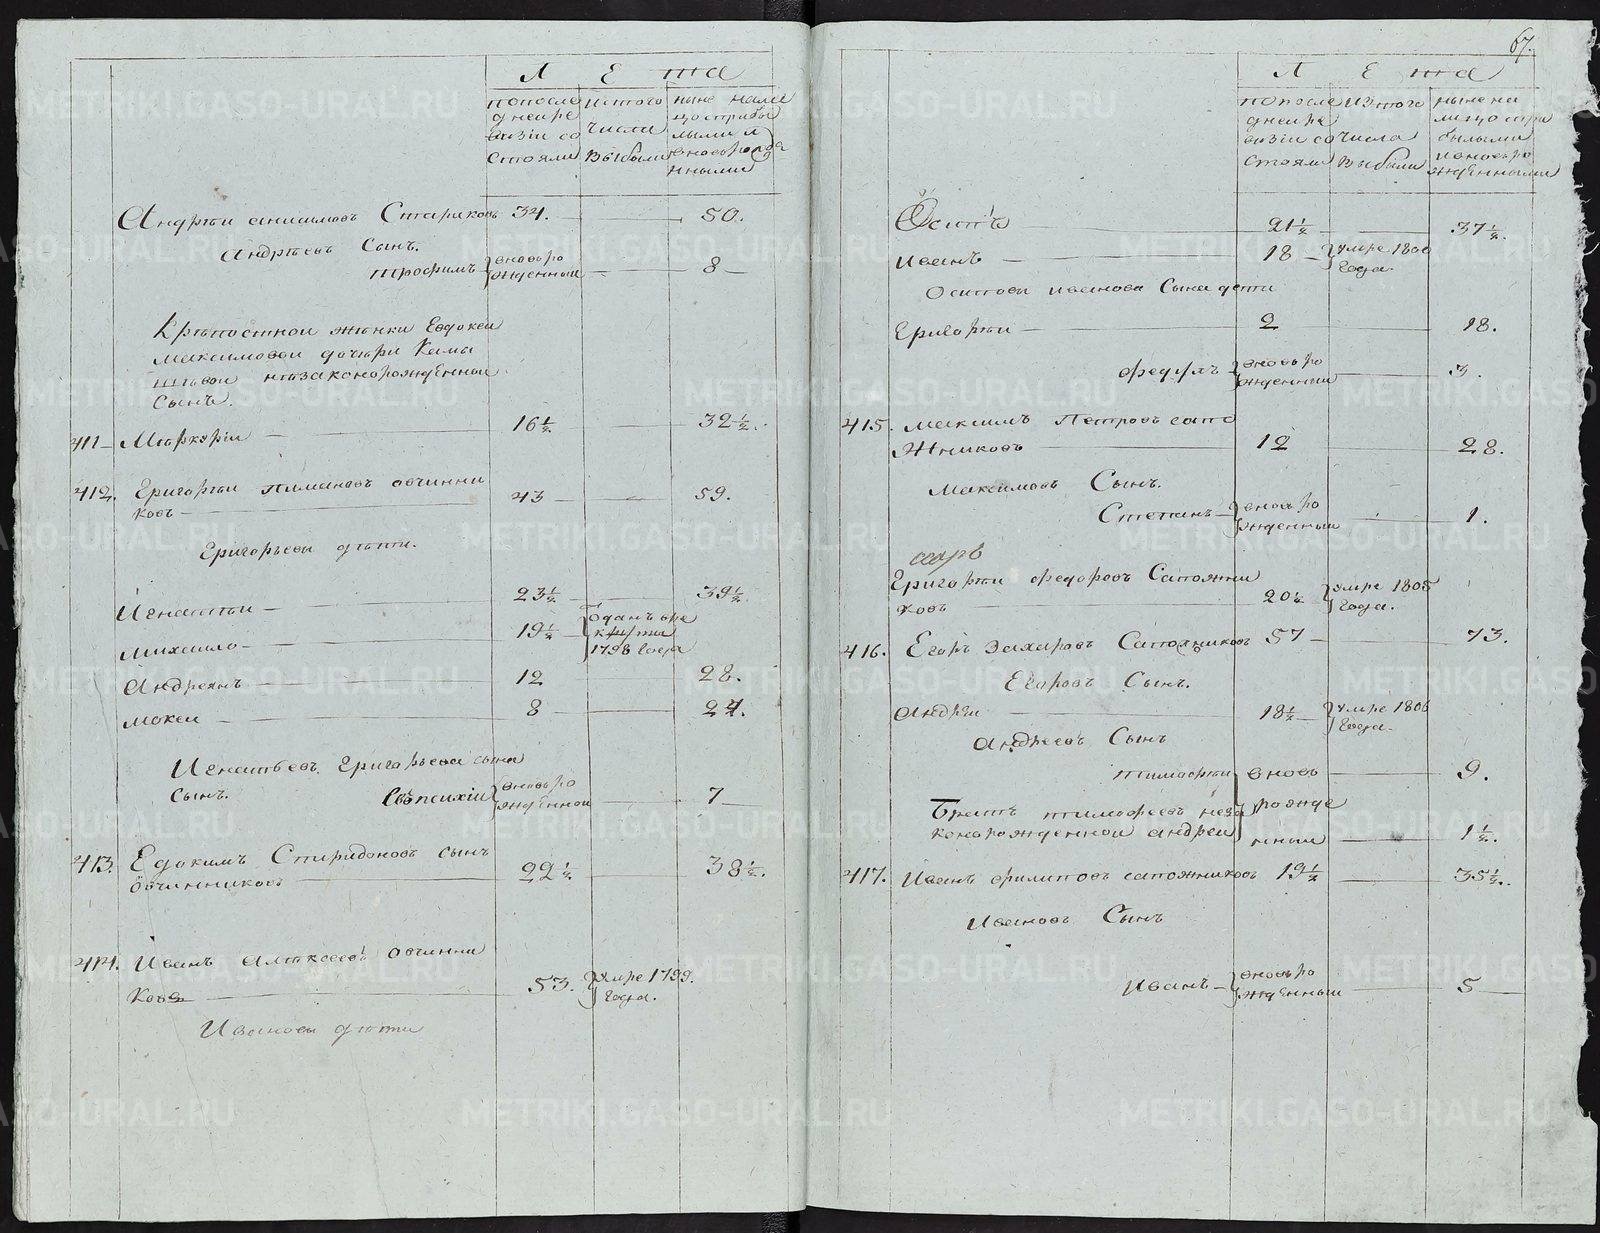 Л Е та
попосле
днеи ре
визiи со
стояли
изтого
числа
выбыли
ныне нали
цо стрибы
лыми и
вновьрожде
нными
Андреи анисимовъ Стариковъ 34. 50.
Андреевъ Сынъ.
трофимъ вновьро
жденныи 8
Крепостнои жонки Евдокеи
максимовои дочери Камы
шевои незаконорожденныи
Сынъ.
411 Меркурiи 16½ 32½.
412. Григореи пимановъ овчинни
ковъ 43 59.
Григорьевы дети.
Игнатеи 23½ 39½
михаило 19½ Отданъ вре
круты
1798 года
Андреянъ 12 28.
мокеи 8 24.
Игнатьевъ Григорьева сына
Сынъ. Евпсихiи вновьро
жденнои 7
413. Едокимъ Спиридоновъ сынъ
Овчинниковъ 22½ 38½.
414. Иванъ алексеевъ овчинни
ковъ 53. умре 1799.
года.
Ивановы дети
67.
Л Е та
попосле
днеи ре
визiи со
стояли
изтого
числа
выбыли
ныне на
лицо стри
былыми
ивновьро
жденными
Осипъ 21½ 37½.
иванъ 18 умре 1800
года.
Осиповы иванова Сына дети
Григореи 2 18.
федулъ вновьро
жденныи 3.
415. максимъ Петровъ сапо
жниковъ 12 28.
Максимовъ Сынъ.
Степанъ вновьро
жденныи 1.
Григореи федоровъ Сапожни
ковъ 20½ умре 1805
года.
416. Егоръ Захаровъ Сапожниковъ 57 73.
Егоровъ Сынъ.
Андреи 18½ умре 1806
года.
Андреевъ Сынъ
тимофеи вновь 9.
Братъ тимофеевъ неза
конорожденнои андреи рожде
нныи 1½.
417. Иванъ филиповъ сапожниковъ 19½ 35½.
Ивановъ Сынъ
Иванъ вновьро
жденныи 5
METRIKI.GASO-URAL.RU